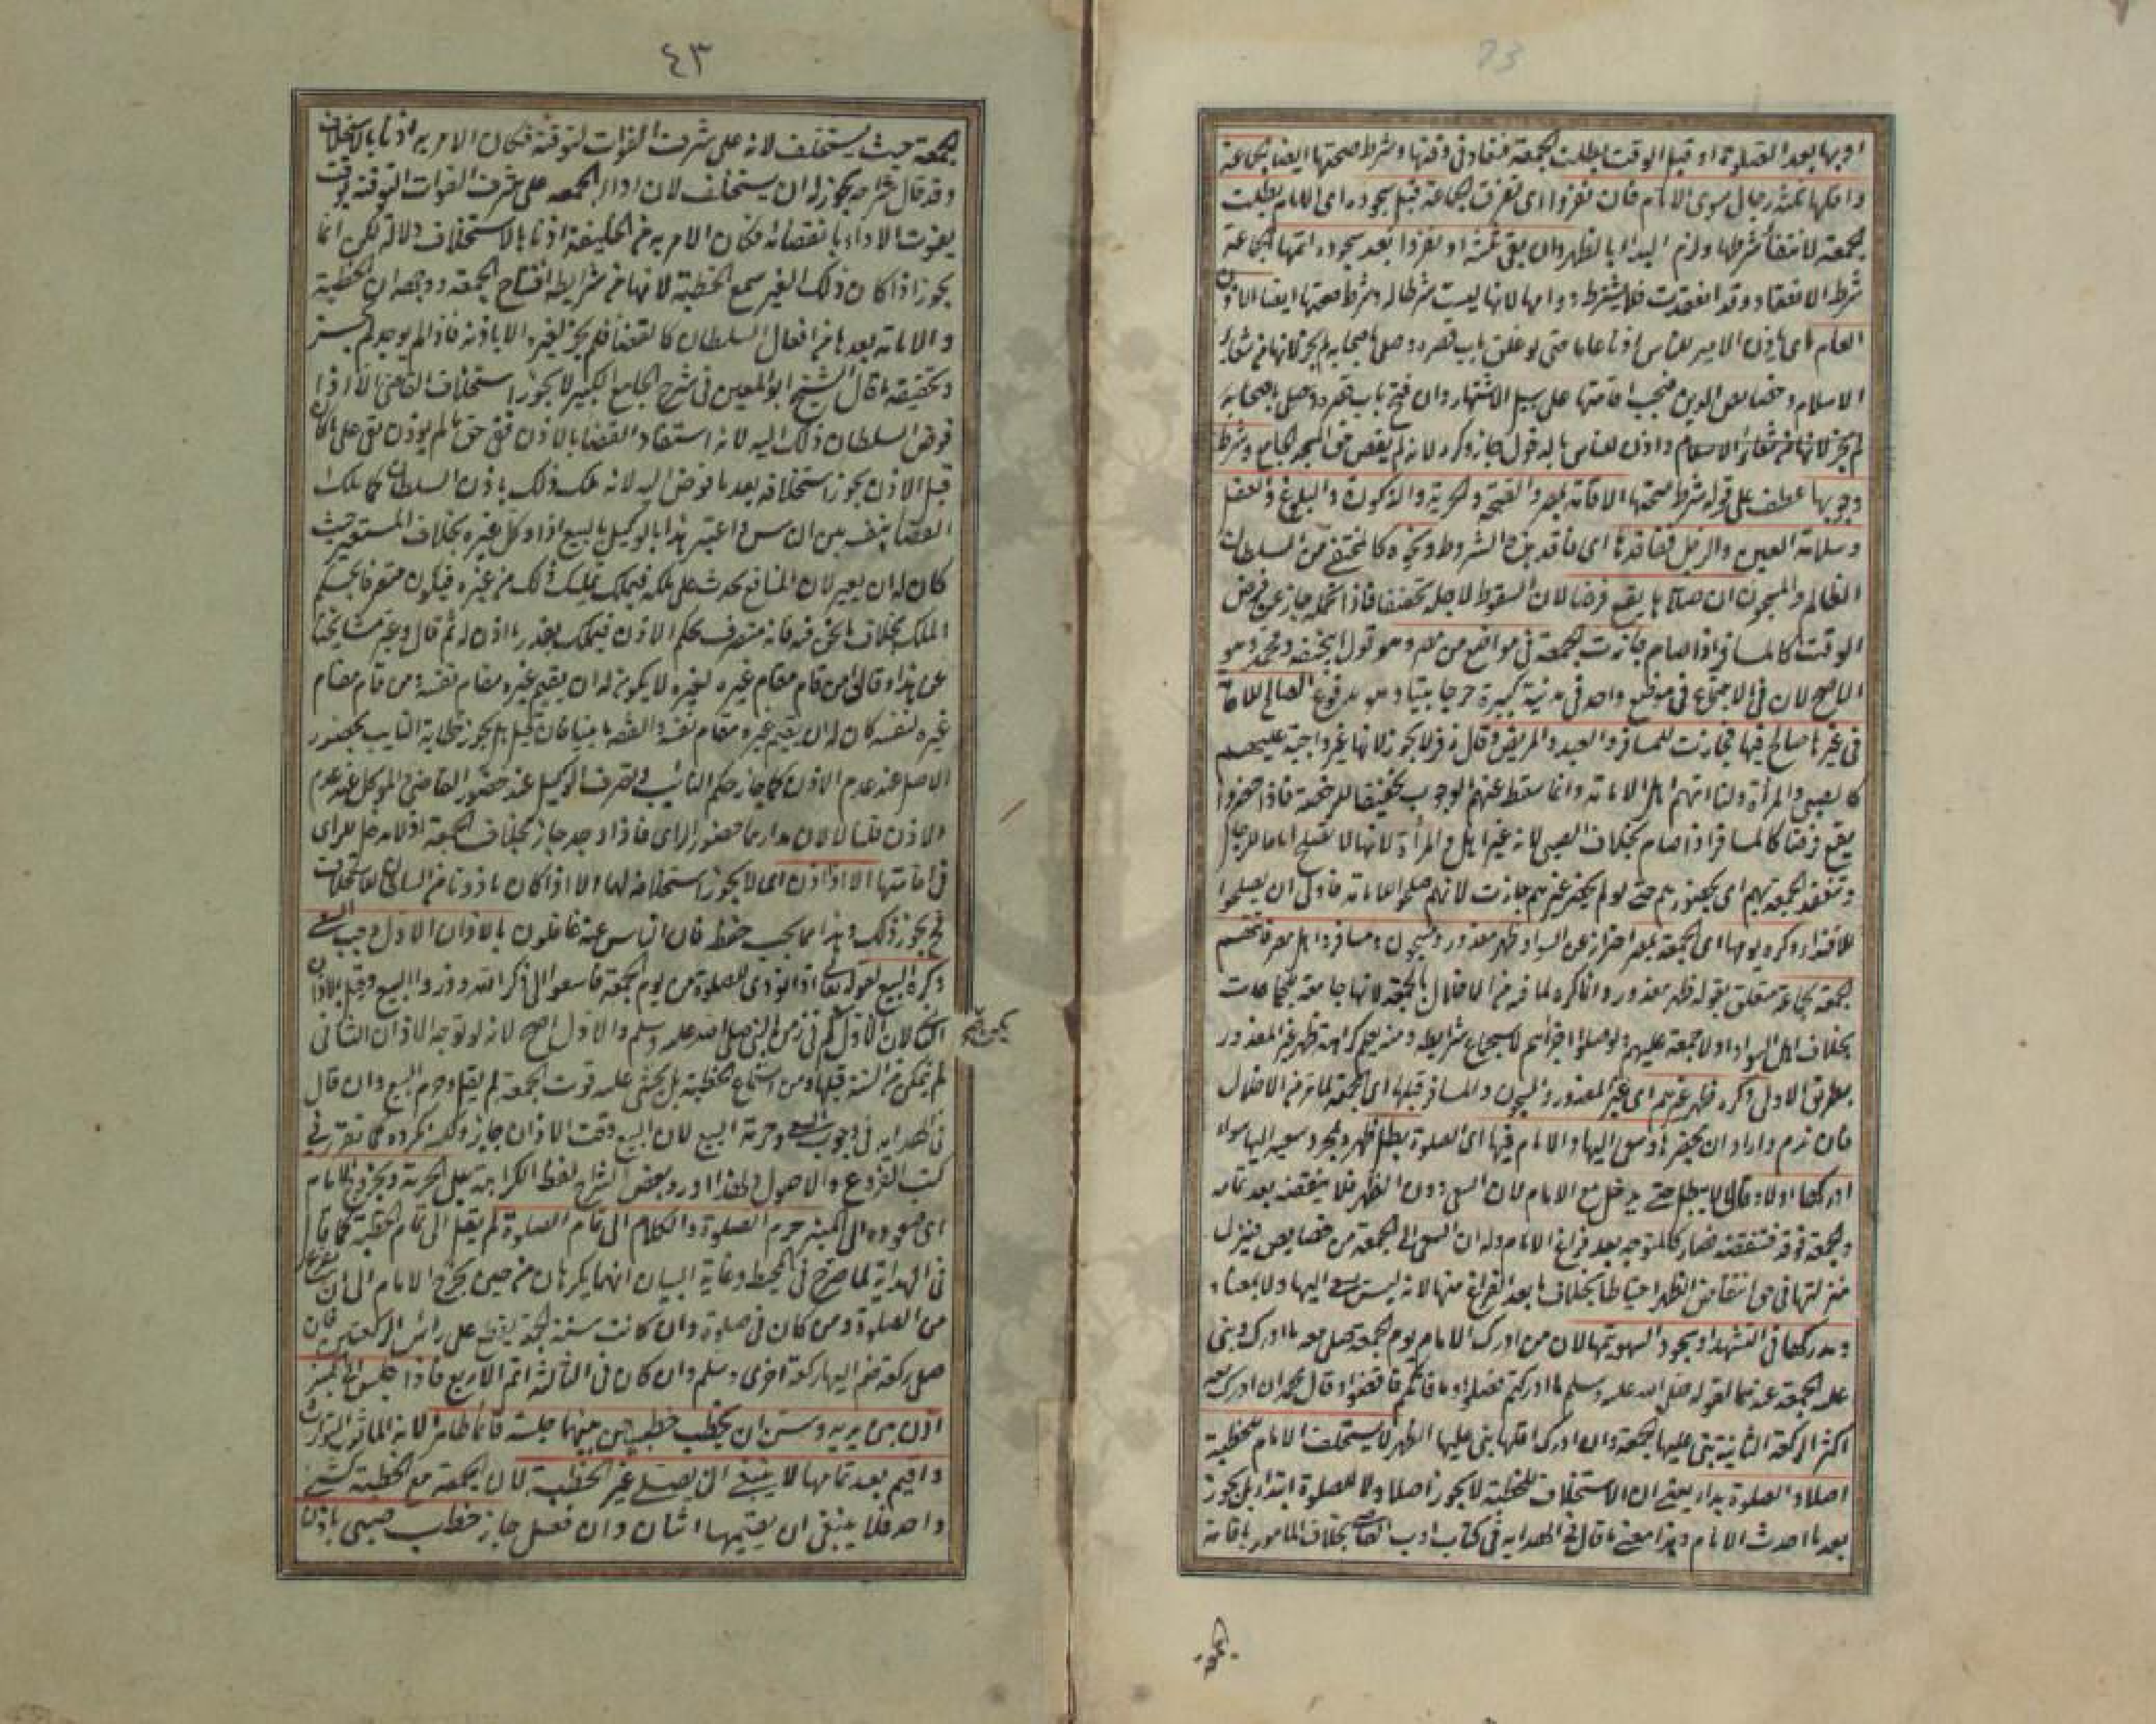 73
او بها بعد الصلوة او قبل الوقت بطلت الجمعة فتعاد فى وقتها وشرط صحتها ايضا الجماعة
واقلها ثلثة رجال سوى الامام فان نفروا اى تفرق الجماعة قبل سجوده اى الامام بطلت
الجمعة لانتفاء شرطها ولزم البداء بالظهر وان بقى ثلثة او نفروا بعد سجوده اتمها الجماعة
شرط الانعقاد وقد انعقدت فلا يشترط دوامها لانها ليست شرطا له وشرط صحتها ايضا الاذن
العام اى ياذن الامير للناس اذنا عاما حتى لو غلق باب قصره وصلى باصحابه لم يجز لانها من شعائر
الاسلام وخصايص الدين فتجب اقامتها على سبيل الاشتهار وان فتح باب قصره وصلى باصحابه
لم يجز لانها من شعائر الاسلام واذن للناس بالدخول جاز وكره لانه لم يقض حق المسجد الجامع وشرط
وجوبها عطف على قوله شرط صحتها الاقامة بمصر والصحة والحرية والذكورة والبلوغ والعقل
وسلامة العين والرجل ففاقدها اى فاقد هذه الشروط ونحوه كالمختفى من السلطان
الظالم والمسجون ان صلاها يقع فرضا لان السقوط لاجله تخفيفا فاذا تحمله جاز عن فرض
الوقت كالمسافر اذا صام جازت الجمعة فى مواضع من مصر وهو قول ابى حنيفة ومحمد وهو
الاصح لان فى الاجتماع فى موضع واحد فى مدينة كبيرة حرجا بينا وهو مدفوع الصالح للامامة
فى غيرها صالح فيها فجازت للمسافر والعبد والمريض وقال زفر لا يجوز لانها غير واجبة عليهم
كالصبى والمرأة ولنا انهم اهل الامامة وانما سقط عنهم الوجوب تخفيفا للرخصة فاذا حضروا
يقع فرضا كالمسافر اذا صام بخلاف الصبى لانه غير اهل والمرأة لانها لا تصلح اماما للرجال
وتنعقد الجمعة بهم اى بحضورهم حتى لو لم يحضر غيرهم جازت لانهم صلحوا للامامة فاولى ان يصلحوا
للاقتداء وكره يومها اى الجمعة بمصر احتراز عن السواد ظهر معذور ومسجون ومسافر واهل مصر فاتتهم
الجمعة بجماعة متعلق بقوله ظهر معذور وانما كره لما فيه من الاخلال بالجمعة لانها جامعة للجماعات
بخلاف اهل السواد اذ لا جمعة عليهم ولو صلوا اجزأهم لاستجماع شرايطه ومنه يعلم كراهة ظهر غير المعذور
بطريق الاولى وكره ظهر غيرهم اى غير المعذور والمسجون والمسافر قبلها اى الجمعة لما مر من الاخلال
فان ندم واراد ان يحضرها وسعى اليها والامام فيها اى الصلوة بطل ظهره بمجرد سعيه اليها سواء
ادركها اولا وقالا لا يبطل حتى يدخل مع الامام لان السعى دون الظهر فلا ينقضه بعد تمامه
والجمعة فوقه فتنقضه فصار كالمتوجه بعد فراغ الامام وله ان السعى الى الجمعة من خصايص فينزل
منزلتها فى حق انتقاض الظهر احتياطا بخلاف ما بعد الفراغ منها لانه ليس بسعى اليها ولا بمعناه
ومدركها فى التشهد او سجود السهو يتمها لان من ادرك الامام يوم الجمعة صلى معه ما ادرك وبنى
عليه الجمعة عندهما لقوله صلى الله عليه وسلم ما ادركتم فصلوا وما فاتكم فاقضوا وقال محمد ان ادرك معه
اكثر الركعة الثانية بنى عليها الجمعة وان ادرك اقلها بنى عليها الظهر لا يستخلف الامام للخطبة
اصلا والصلوة بداء يعنى ان الاستخلاف للخطبة لا يجوز اصلا ولا للصلوة ابتداء بل يجوز
بعد ما احدث الامام وهذا معنى ما قال فى الهداية فى كتاب ادب القاضى بخلاف المامور باقامة
الجمعة
٤٣
الجمعة حيث يستخلف لانه على شرف الفوات لتوقته فكان الامر به اذنا بالاستخلاف
وقد قال شراحه يجوز له ان يستخلف لان اداء الجمعة على شرف الفوات لتوقته بوقت
يفوت الاداء بانقضائه فكان الامر به من الخليفة اذنا بالاستخلاف دلالة لكن انما
يجوز اذا كان ذلك الغير سمع الخطبة لانها من شرايط افتتاح الجمعة ووجهه ان الخطبة
والامامة بعدها من افعال السلطان كالقضاء فلم يجز لغيره الا باذنه فاذا لم يوجد لم يجز
وتحقيقه ما قال الشيخ ابو المعين فى شرح الجامع الكبير لا يجوز استخلاف القاضى الا اذا
فوض السلطان ذلك اليه لانه استفاد القضاء بالاذن ففى حق ما لم يؤذن بقى على ما كان
قبل الاذن يجوز استخلافه بعد ما فوض اليه لانه ملك ذلك باذن السلطان كما ملك
القضاء بنفسه بين الناس واعتبر هذا بالوكيل بالبيع اذا وكل غيره بخلاف المستعير حيث
كان له ان يعير لان المنافع تحدث على ملكه فيملك تمليك ذلك من غيره فيكون متصرفا بحكم
الملك بخلاف ما نحن فيه فانه متصرف بحكم الاذن فيملك بقدر ما اذن له ثم قال وعبر مشايخنا
عن هذا وقالوا من قام مقام غيره لغيره لا يكون له ان يقيم غيره مقام نفسه ومن قام مقام
غيره لنفسه كان له ان يقيم غيره مقام نفسه والفقه ما بينا فان قيل هل يجوز خطابة النايب بحضور
الاصل عند عدم الاذن كما جاز حكم النائب وتصرف الوكيل عند حضور القاضى والموكل عند عدم
الاذن قلنا لا لان مدارهما حضور الراى فاذا وجد جاز بخلاف الجمعة اذ لا مدخل للراى
فى اقامتها الا اذا اذن اى لا يجوز استخلافه لها الا اذا كان ماذونا من السلطان للاستخلاف
فح يجوز ذلك وهذا مما يجب حفظه فان الناس عنه غافلون بالاذان الاول وجب السعى
وكره البيع لقوله تعالى اذا نودى للصلوة من يوم الجمعة فاسعوا الى ذكر الله وذروا البيع وقيل بالاذان
الثانى لان الاول لم يكن فى زمن النبى صلى الله عليه وسلم والاول اصح لانه لو توجه الاذان الثانى
لم يتمكن من السنة قبلها ومن استماع الخطبة بل يخشى عليه فوت الجمعة لم يقل وحرم البيع وان قال
فى الهداية فى وجوب السعى وحرمة البيع لان البيع وقت الاذان جايز ولكنه مكروه كما تقرر فى
كتب الفروع والاصول ولهذا اورد بعض الشراح لفظ الكراهة بدل الحرمة وبخروج الامام
اى صعوده الى المنبر حرم الصلوة والكلام الى تمام الصلوة لم يقل الى تمام الخطبة كما قال
فى الهداية لما صرح فى المحيط وغاية البيان انهما يكرهان من حين يخرج الامام الى ان يفرغ
من الصلوة ومن كان فى صلوة وان كانت سنة الجمعة يقطع على رأس الركعتين فان
صلى ركعة ضم اليها ركعة اخرى وسلم وان كان فى الثالثة اتم الاربع فاذا جلس على المنبر
اذن بين يديه وسن ان يخطب خطبتين بينهما جلسة قائما طاهرا لانه الماثور المتوارث
واقيم بعد تمامها لا ينبغى ان يصلى غير الخطيب لان الجمعة مع الخطبة كشئ
واحد فلا ينبغى ان يقيمها اثنان وان فعل جاز خطب صبى باذن